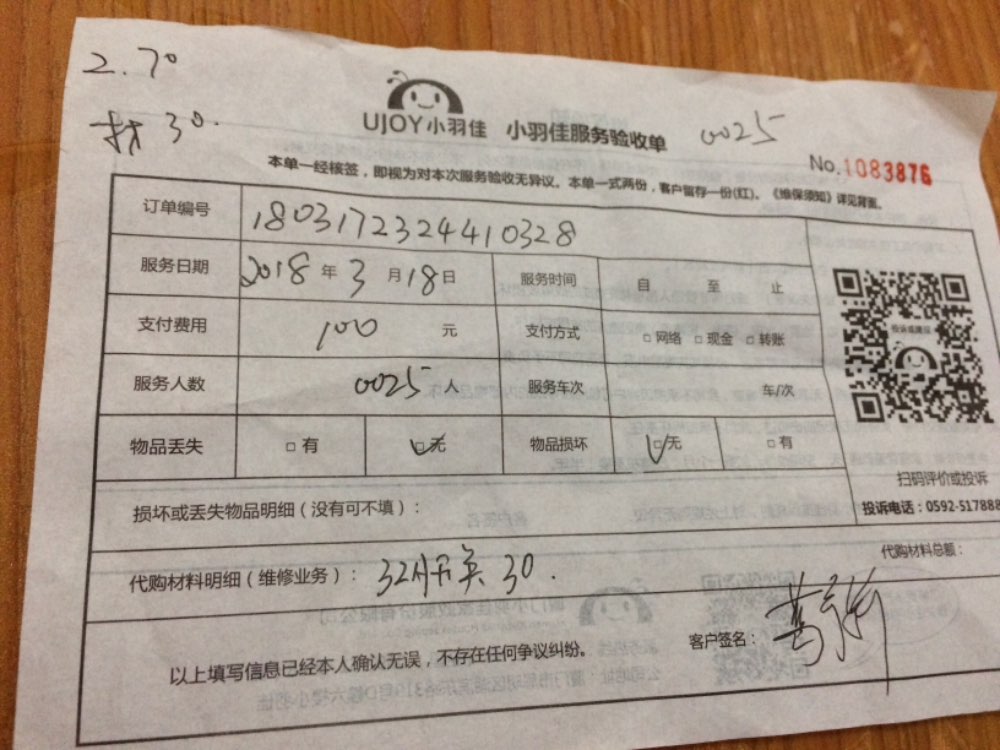 2.70
材 30.
UJOY小羽佳 小羽佳服务验收单 0025
No.1083876
本单一经核签，即视为对本次服务验收无异议。本单一式两份，客户留存一份(红)。《维保须知》详见背面。
订单编号 180317232441 0328
服务日期 2018 年 3 月 18 日 服务时间 自 至 止
支付费用 100 元 支付方式 □ 网络 □ 现金 □ 转账
服务人数 0025 人 服务车次 车/次
物品丢失 □ 有 ☑ 无 物品损坏 ☑ 无 □ 有
扫码评价或投诉
投诉电话：0592-517888
损坏或丢失物品明细（没有可不填）：
代购材料总额：
代购材料明细（维修业务）： 32A开关 30.
客户签名：
以上填写信息已经本人确认无误，不存在任何争议纠纷。